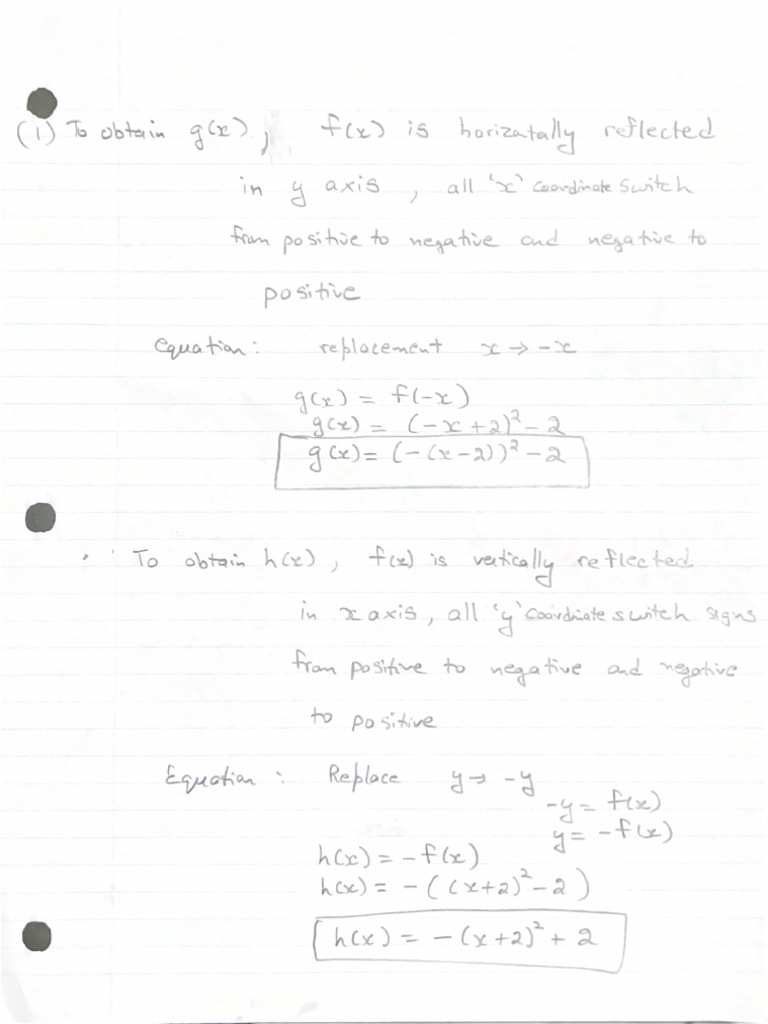 (1) To obtain g(x), f(x) is horizatally reflected
in y axis, all 'x' coordinate switch
from positive to negative and negative to
positive
Equation: replacement x → -x
g(x) = f(-x)
g(x) = (-x+2)² - 2
g(x) = (-(x-2))² - 2
To obtain h(x), f(x) is vertically reflected
in x axis, all 'y' coordinate switch signs
from positive to negative and negative
to positive
Equation: Replace y → -y
-y = f(x)
y = -f(x)
h(x) = -f(x)
h(x) = -((x+2)² - 2)
h(x) = -(x+2)² + 2